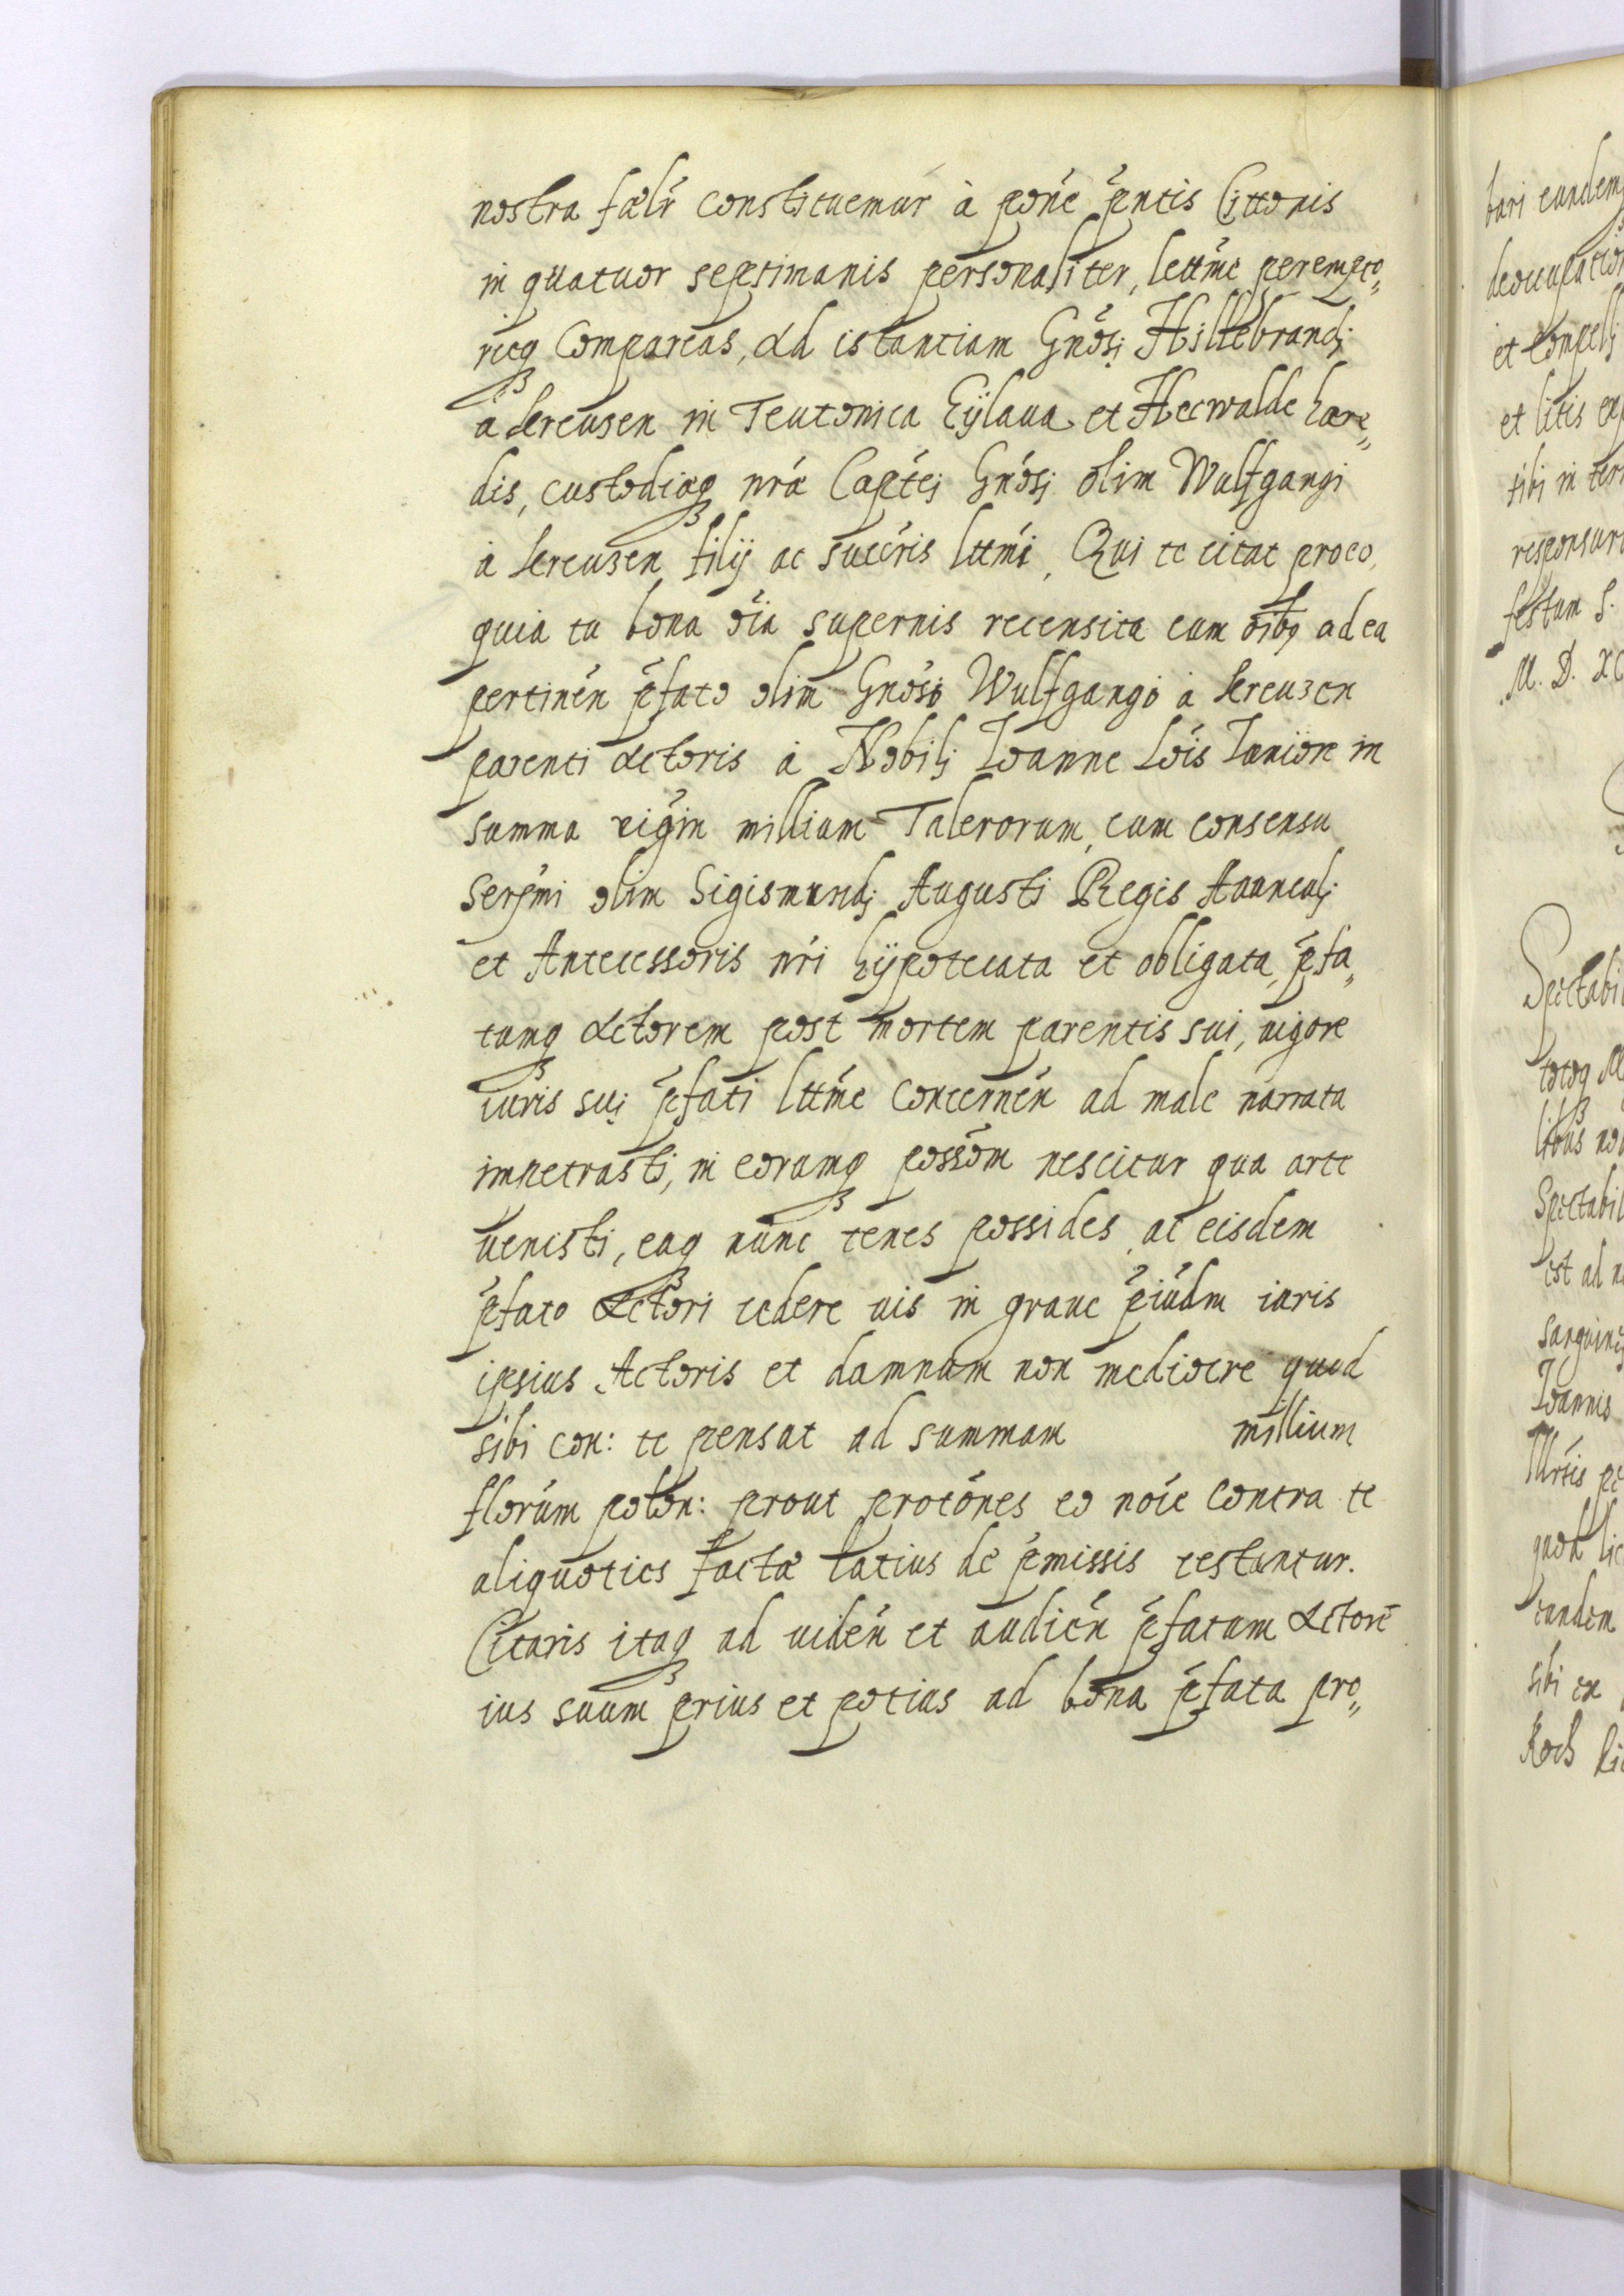 nostra fælr̃ constituemur à põne p̃ntis Cittonis
in quatuor septimanis personaliter, lettm̃e perempto„
rieqꝫ Compareas, Ad istantiam Gnõsi Hillebrandi
a Kreuzen in Teutonica Eÿlaua et Hecwalde hære„
dis, custodiæqꝫ nr̃æ Captẽi Gnõsi olim Wulfgangi
à Kreuzen filÿ ac succr̃is lttm̃i, Qui te citat pro eo,
quia tu bona õia supernis recensita cum õibꝫ ad ea
pertineñ p̃fato olim Gnõso Wulfgango à Kreuzen
parenti Actoris à Nobili Ioanne Lõis Iuniore in
summa vigin̄ millium Talerorum, cum consensu
Serẽmi olim Sigismundi Augusti Regis Auunculi
et Antecessoris nr̃i hÿpotecata et obligata, p̃fa„
tumqꝫ Actorem post mortem parentis sui, uigore
iuris sui p̃fati lttm̃e Concerneñ ad male narrata
impetrasti, in eorumqꝫ possõm nescitur qua arte
uenisti, eaqꝫ nunc tenes possides, ac eisdem
p̃fato Actori cedere uis in graue p̃iudm iuris
ipsius Actoris et damnum non mediocre quod
sibi con: te pensat ad summam millium
florũm polon: prout protõnes eo nõie Contra te
aliquoties factæ latius de p̃missis testantur.
Citaris itaqꝫ ad uideñ et audieñ p̃fatum Actorẽ
ius suum prius et potius ad bona p̃fata pro„
bari eundem
et compelli
et litis
sibi in
festum S.
M. D. XC
Spectabi
totoqꝫ M
Spectabil
est ad
Ioannis
quod
eundem
sibi ex